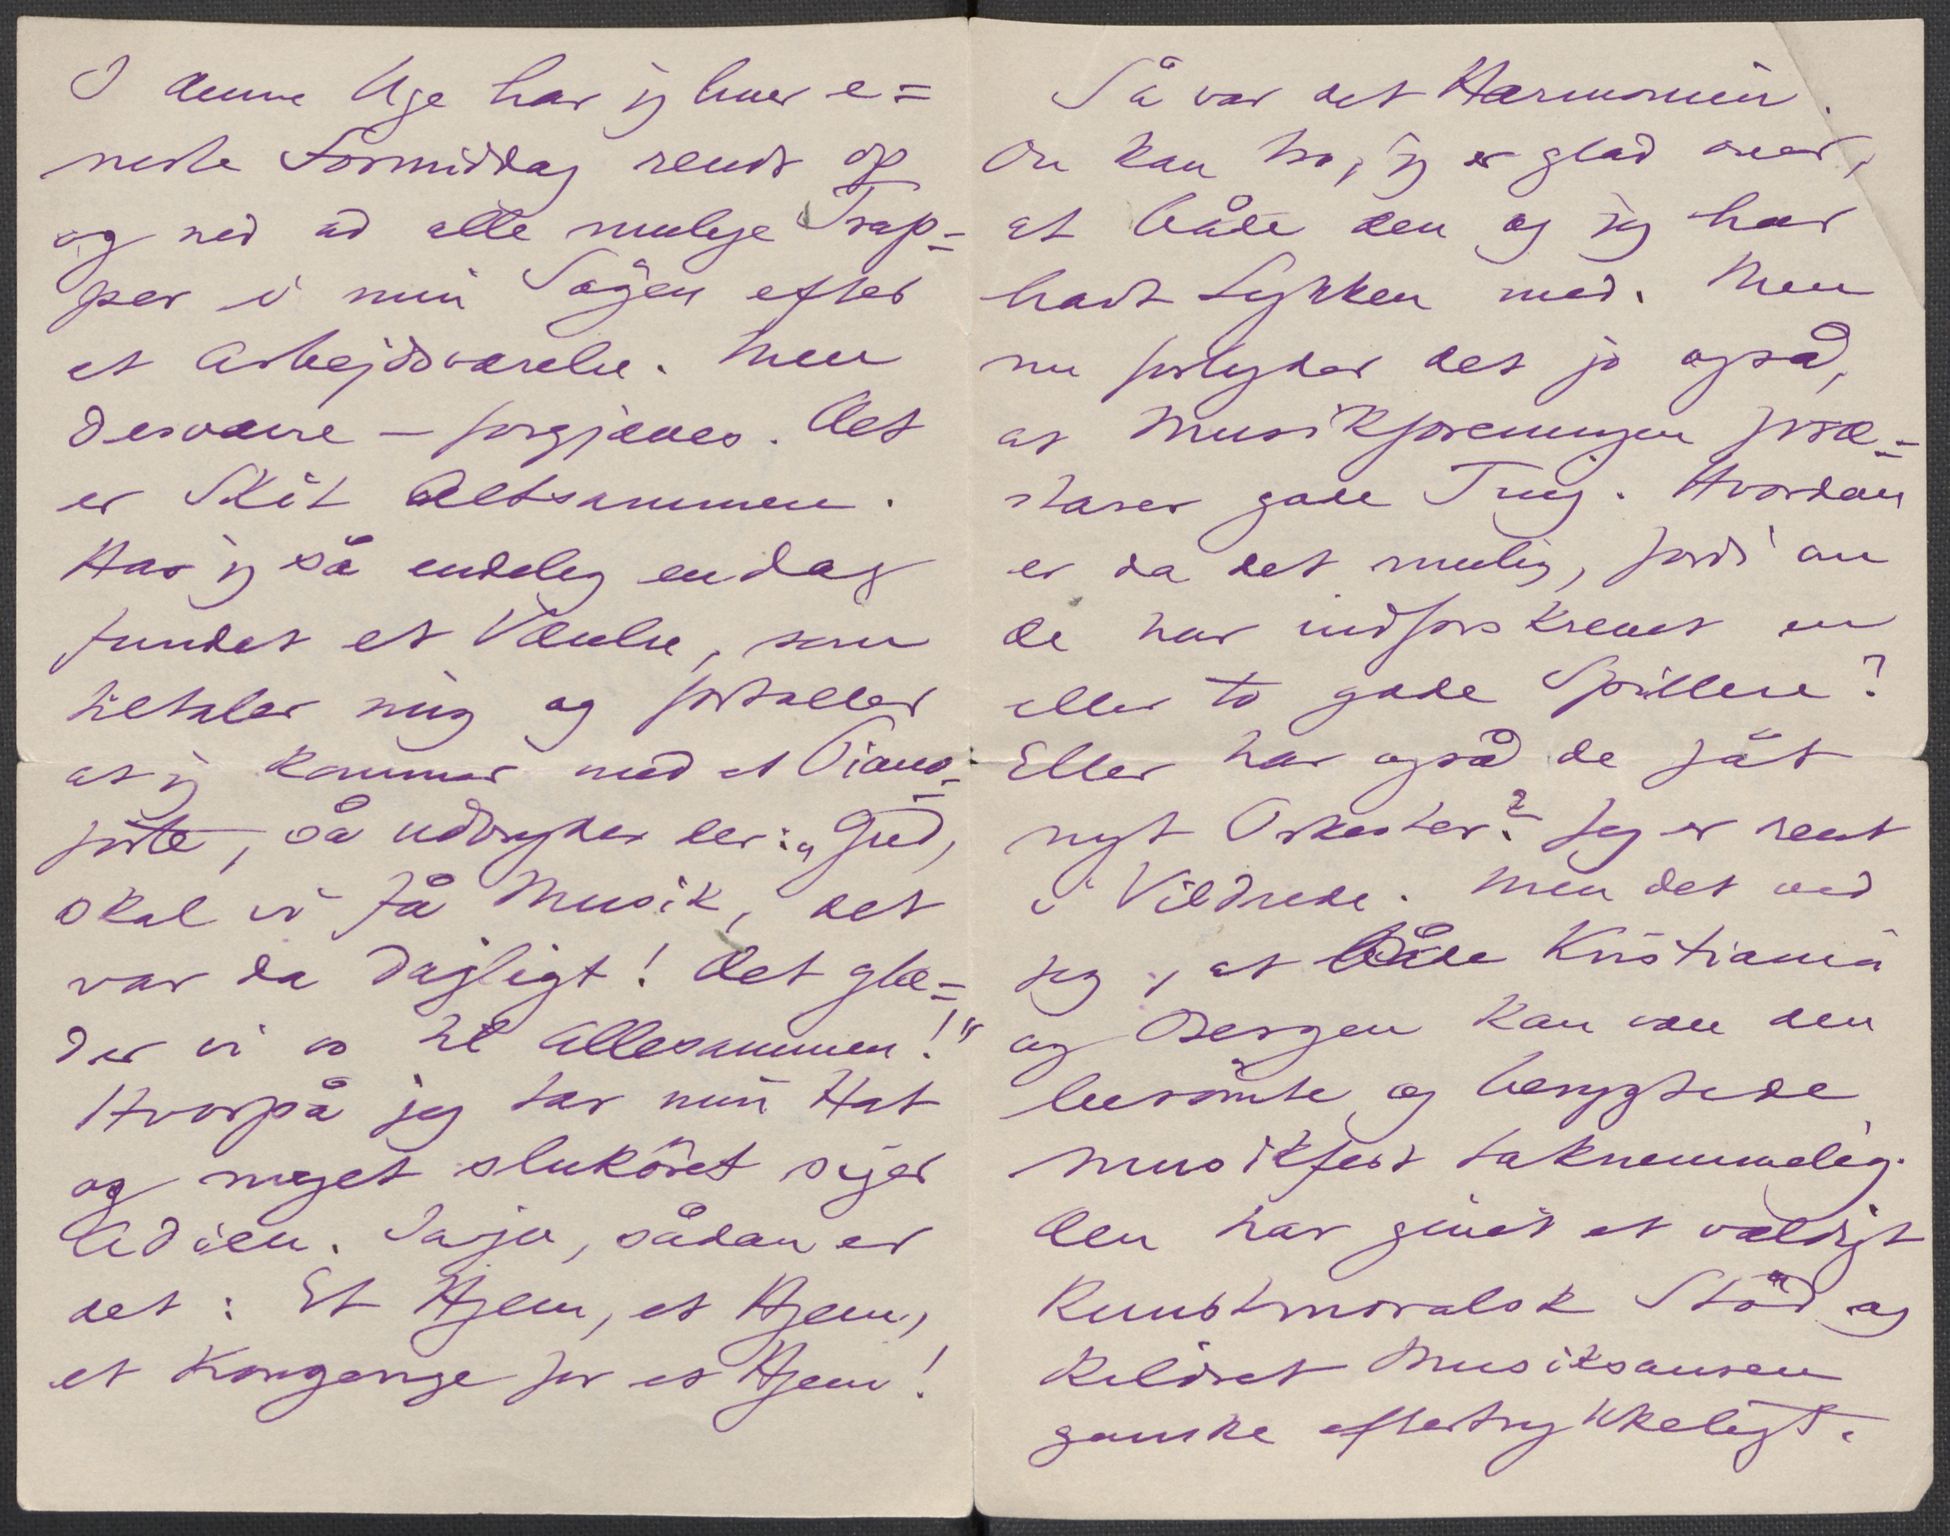 I denne Uge har jeg hver e=
neste Formiddag rendt op
og ned ad alle mulige Trap=
per i min Søgen efter
et Arbejdsværelse. Men
desværre – forgjæves. Det
er Skit Altsammen.
Har jeg så endelig en dag
fundet et Værelse, som
tiltaler mig og fortæller
at jeg kommer med et Piano=
forte, så udbryder der: „Gud,
skal vi få Musik, det
var da dejligt! Det glæ=
der vi os til allesammen!"
Hvorpå jeg tar min Hat
og meget slukøret siger
Adieu. Jaja, sådan er
det: Et Hjem, et Hjem,
et Kongerige for et Hjem!
Så var det Harmonien.
Du kan tro, jeg er glad over,
at både den og jeg har
havt Lykken med. Men
nu forlyder det jo også,
at Musikforeningen præ=
sterer gode Ting. Hvordan
er da det mulig, fordi om
de har indforskrevet en
eller to gode Spillere?
Eller har også de fåt
nyt Orkester? Jeg er rent
i Vildrede. Men det ved
jeg, at både Kristiania
og Bergen kan være den
berømte og berygtede
Musikfest taknemmelig.
Den har givet et vældigt
kunstmoralsk Stød og
kildret Musiksansen
ganske eftertrykkeligt.